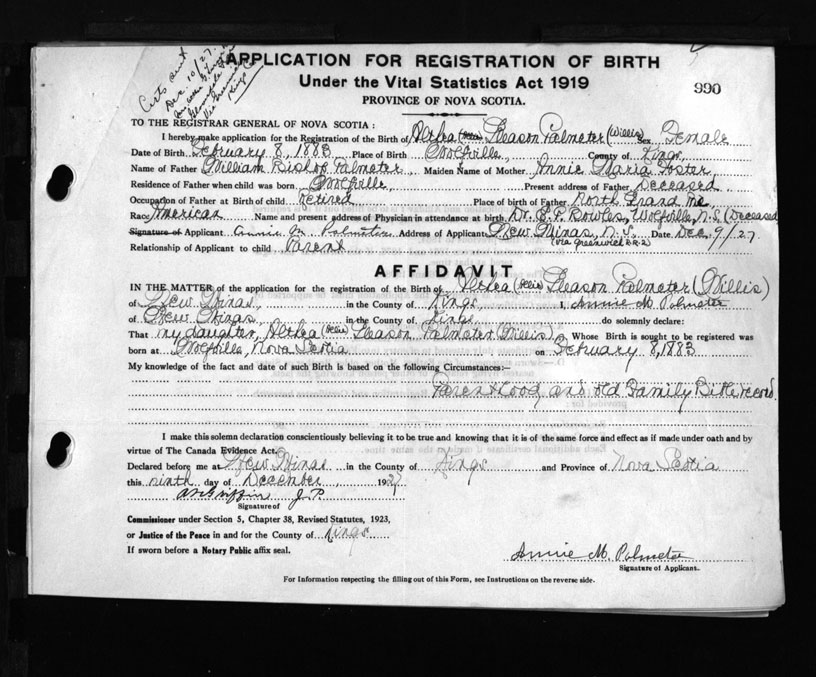 Certs sent
Dec 10/27
APPLICATION FOR REGISTRATION OF BIRTH
Under the Vital Statistics Act 1919
990
PROVINCE OF NOVA SCOTIA.
TO THE REGISTRAR GENERAL OF NOVA SCOTIA:
I hereby make application for the Registration of the Birth of Althea Gleason Palmeter (Willis) Sex Female
Date of Birth February 8, 1883 Place of Birth Wolfville, County of Kings
Name of Father William Bishop Palmeter, Maiden Name of Mother, Annie Maria Foster
Residence of Father when child was born Wolfville, Present address of Father Deceased
Occupation of Father at Birth of child retired Place of birth of Father North Grand Pre
Race American Name and present address of Physician in attendance at birth Dr. E. P. Bowles, Wolfville, N.S. (Deceased
Signature of Applicant Annie M. Palmeter Address of Applicant New Minas, N.S. Date Dec. 9/27.
(via Greenwich R.R.2)
Relationship of Applicant to child Parent
AFFIDAVIT
IN THE MATTER of the application for the registration of the Birth of Althea Gleason Palmeter (Willis)
of New Minas, in the County of Kings I, Annie M. Palmeter
of New Minas, in the County of Kings do solemnly declare:
That my daughter, Althea Gleason Palmeter (Willis), Whose Birth is sought to be registered was
born at Wolfville, Nova Scotia on February 8, 1883
My knowledge of the fact and date of such Birth is based on the following Circumstances:—
Parenthood, and old Family Bible record.
I make this solemn declaration conscientiously believing it to be true and knowing that it is of the same force and effect as if made under oath and by
virtue of The Canada Evidence Act.
Declared before me at New Minas in the County of Kings and Province of Nova Scotia
this ninth day of December 1927
J.P.
Signature of
Commissioner under Section 5, Chapter 38, Revised Statutes, 1923,
or Justice of the Peace in and for the County of Kings
If sworn before a Notary Public affix seal.
Annie M. Palmeter
Signature of Applicant.
For Information respecting the filling out of this Form, see Instructions on the reverse side.